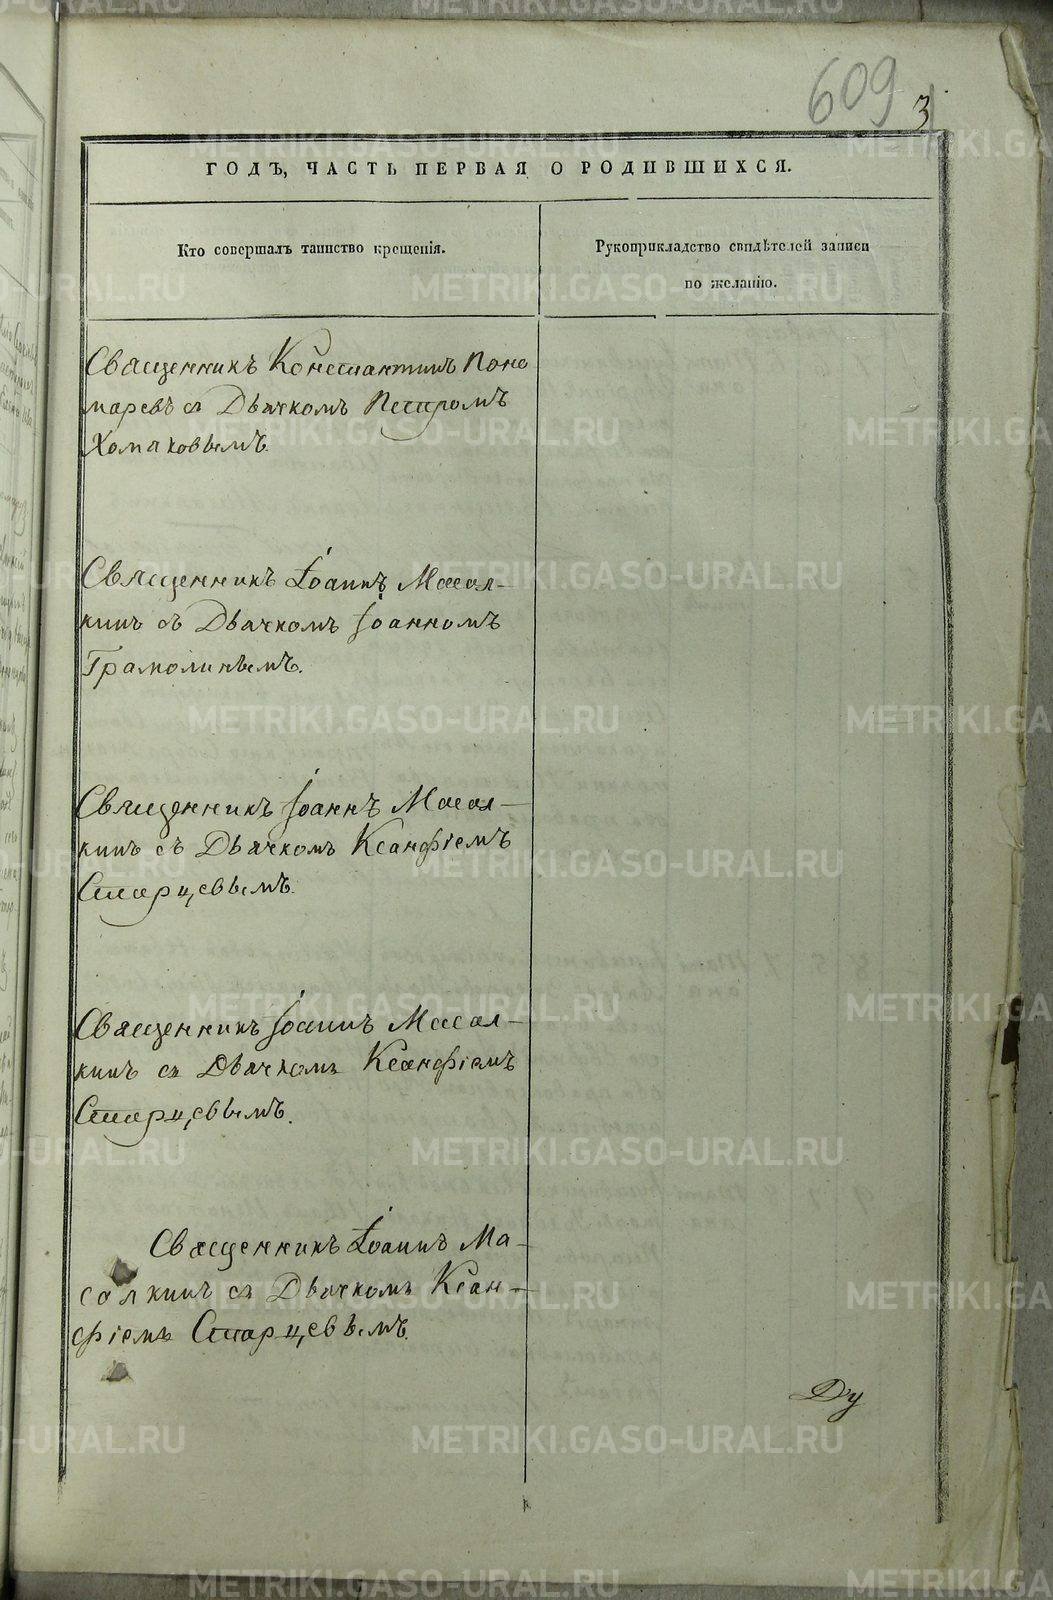 609
3
ГОДЪ, ЧАСТЬ ПЕРВАЯ О РОДИВШИХСЯ.
Кто совершалъ таинство крещенія.
Рукоприкладство свидѣтелей записи
по желанію.
Священникъ Константинъ Поно
маревъ съ Дьячкомъ Петромъ
Хомяковымъ.
Священникъ Іоаннъ Масал-
кинъ съ Дьячкомъ Іоанномъ
Грамолинымъ.
Священникъ Іоаннъ Масал-
кинъ съ Дьячкомъ Ксанфіемъ
Старцевымъ.
Священникъ Іоаннъ Масал-
кинъ съ Дьячкомъ Ксанфіемъ
Старцевымъ.
Священникъ Іоаннъ Ма-
салкинъ съ Дьячкомъ Ксан-
фіемъ Старцевымъ.
Ду
METRIKI.GASO-URAL.RU